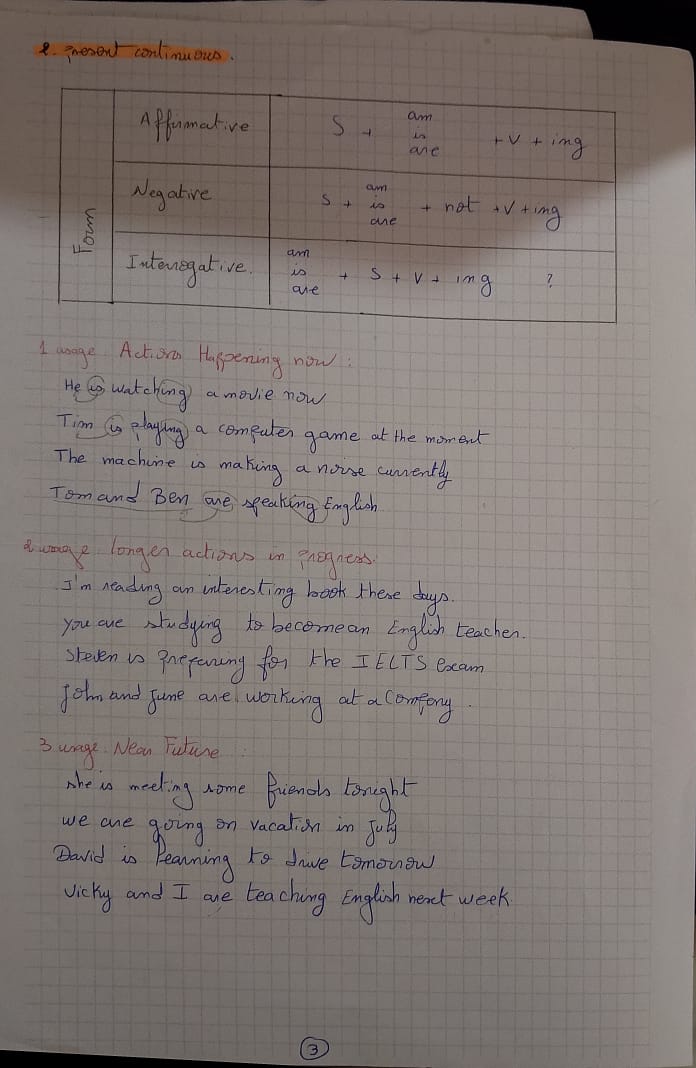 2. present continuous.
Form
Affirmative
S + am is are + V + ing
Negative
S + am is are + not + V + ing
Interrogative.
am is are + S + V + ing ?
1 usage. Actions Happening now :
He is watching a movie now
Tim is playing a computer game at the moment
The machine is making a noise currently
Tom and Ben are speaking English
2 usage longer actions in progress.
I'm reading an interesting book these days.
you are studying to become an English teacher.
Steven is preparing for the IELTS exam
John and June are working at a Compony.
3 usage. Near Future :
she is meeting some friends tonight
we are going on vacation in July
David is learning to drive tomorrow
Vicky and I are teaching English next week.
3